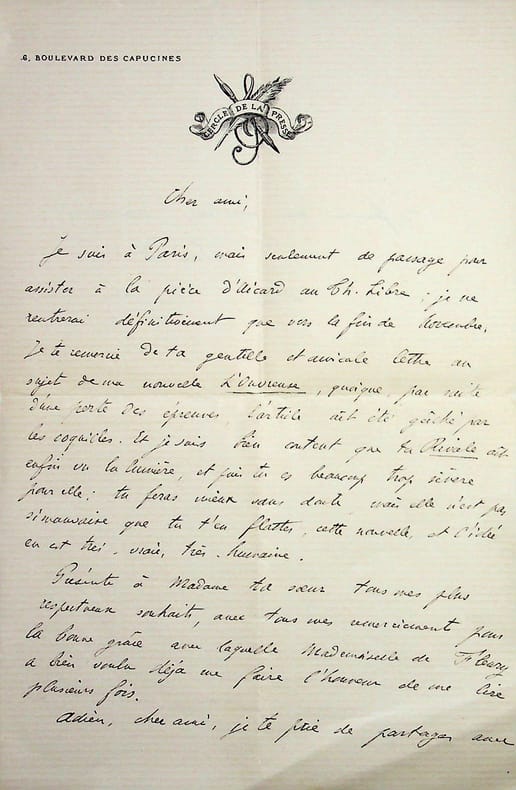 6, BOULEVARD DES CAPUCINES
CERCLE DE LA PRESSE
Cher ami,
Je suis à Paris, mais seulement de passage pour
assister à la pièce d'Aicard au Th. Libre ; je ne
rentrerai définitivement que vers la fin de Novembre.
Je te remercie de ta gentille et amicale lettre au
sujet de ma nouvelle L'Ouvreuse, quoique, par suite
d'une perte des épreuves, l'article ait été gâché par
les coquilles. Et je suis bien content que ta Rivale ait
enfin vu la lumière, et puis tu es beaucoup trop sévère
pour elle ; tu feras mieux sans doute, mais elle n'est pas
si mauvaise que tu t'en flattes, cette nouvelle, et l'idée
en est très vraie, très humaine.
Présente à Madame ta sœur tous mes plus
respectueux souhaits, avec tous mes remerciements pour
la bonne grâce avec laquelle Mademoiselle de Fleury
a bien voulu déjà me faire l'honneur de me lire
plusieurs fois.
Adieu, cher ami, je te prie de partager avec